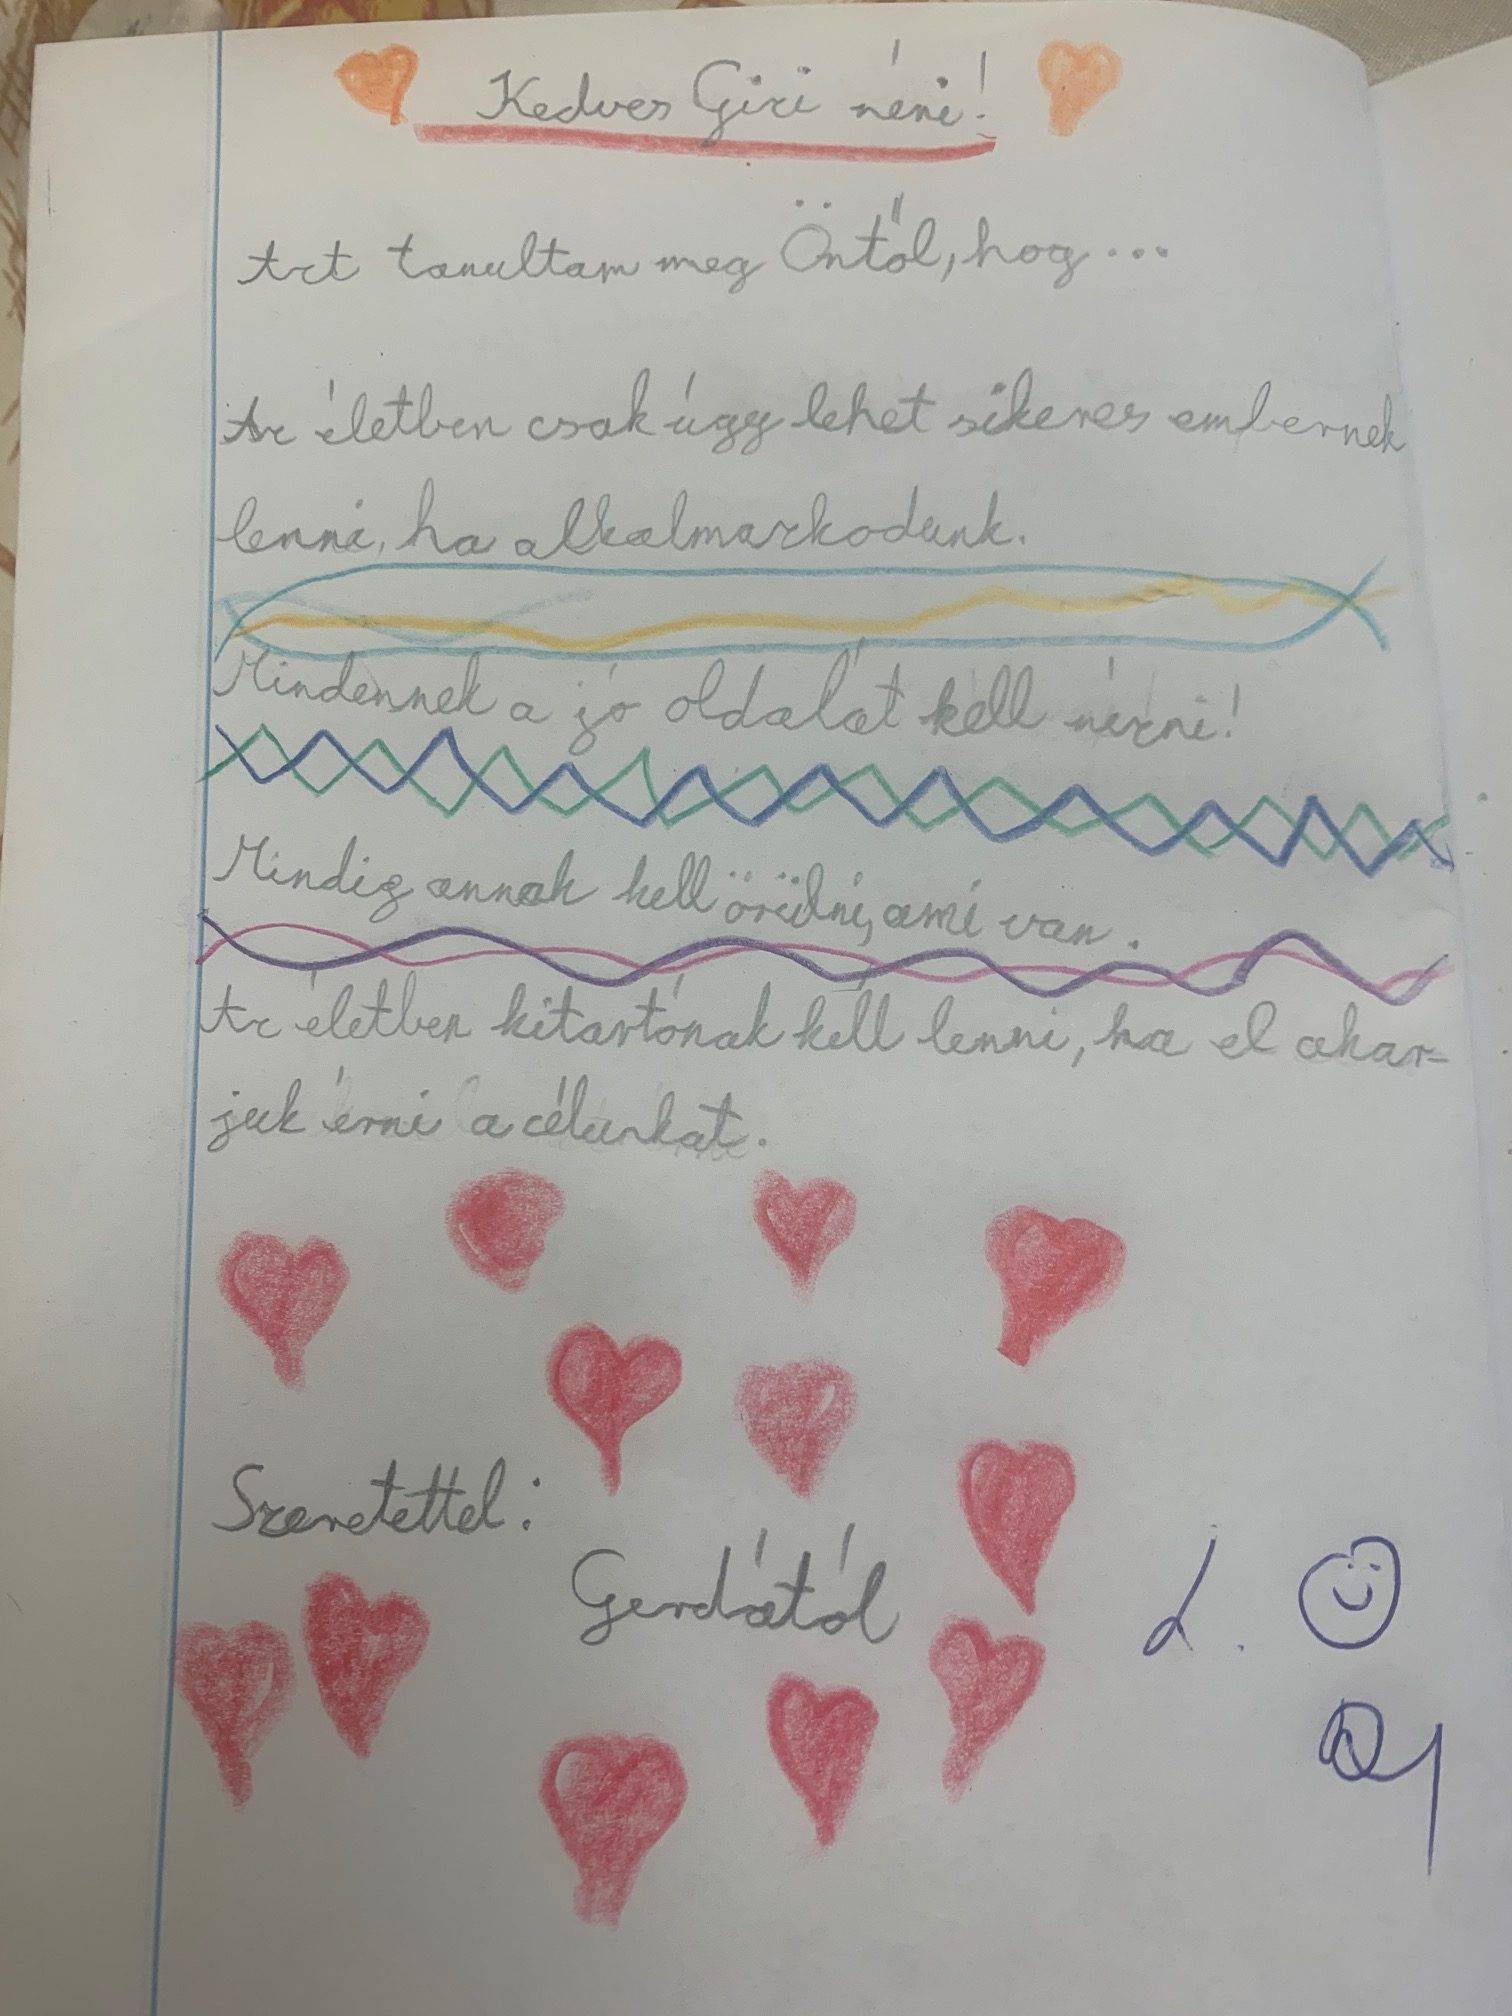 Kedves Gizi néni!
Azt tanultam meg Öntől, hog...
Az életben csak úgy lehet sikeres embernek
lenni, ha alkalmazkodunk.
Mindennek a jó oldalát kell nézni!
Mindig annak kell örülni, ami van.
Az életben kitartónak kell lenni, ha el akar=
juk érni a célunkat.
Szeretettel:
Gerdától